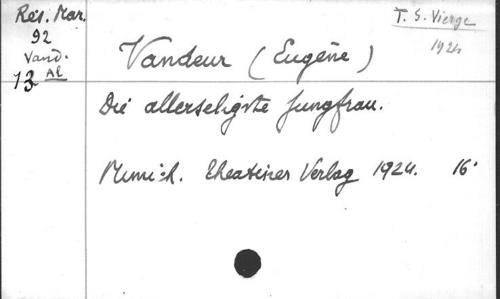 Rés. Mar.
92
Vand.
13 Al
T. S. Vierge
1924
Vandeur (Eugène)
Die allerseligste Jungfrau.
Munich. Theatiner Verlag 1924. 16°